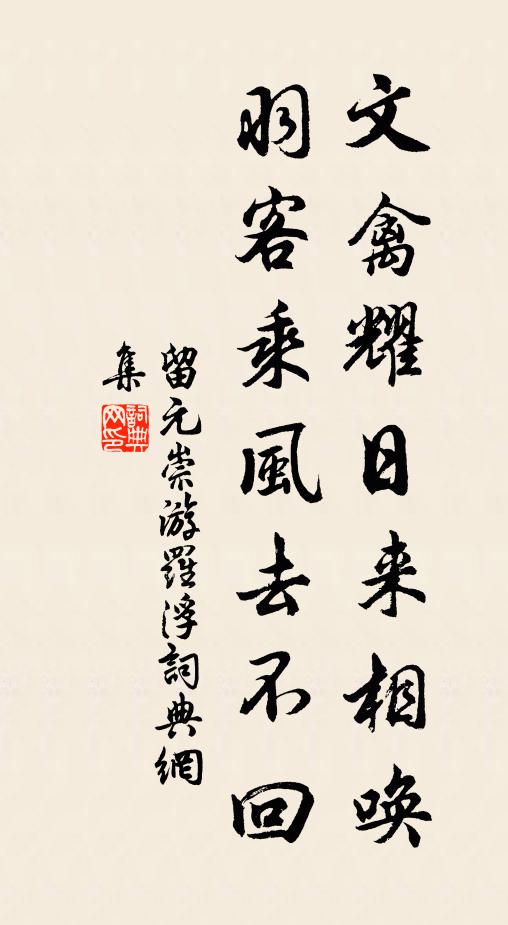 文禽耀日来相唤
羽客乘風去不回
留元崇游羅浮詞典網
集
詞典
网印